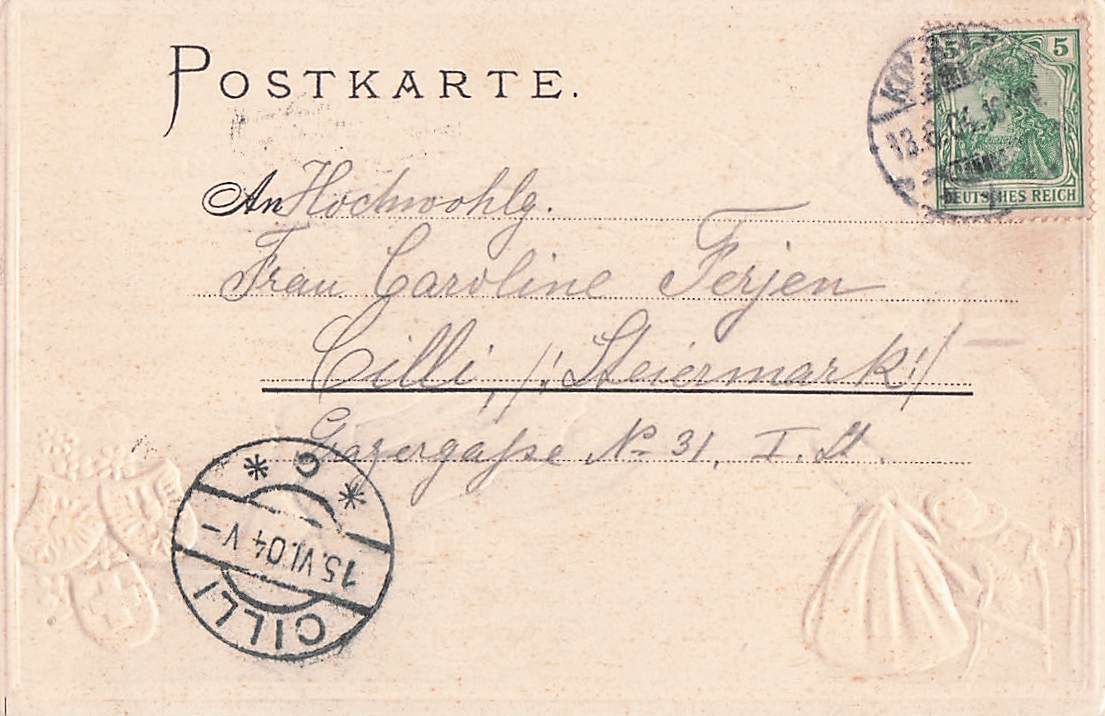 POSTKARTE.
5 5
13.6.04.
DEUTSCHES REICH
An Hochwohlg.
Frau Caroline Ferjen
Cilli, /: Steiermark :/
Grazergasse No 31, I. St.
* C *
15.VI.04 V–
CILLI